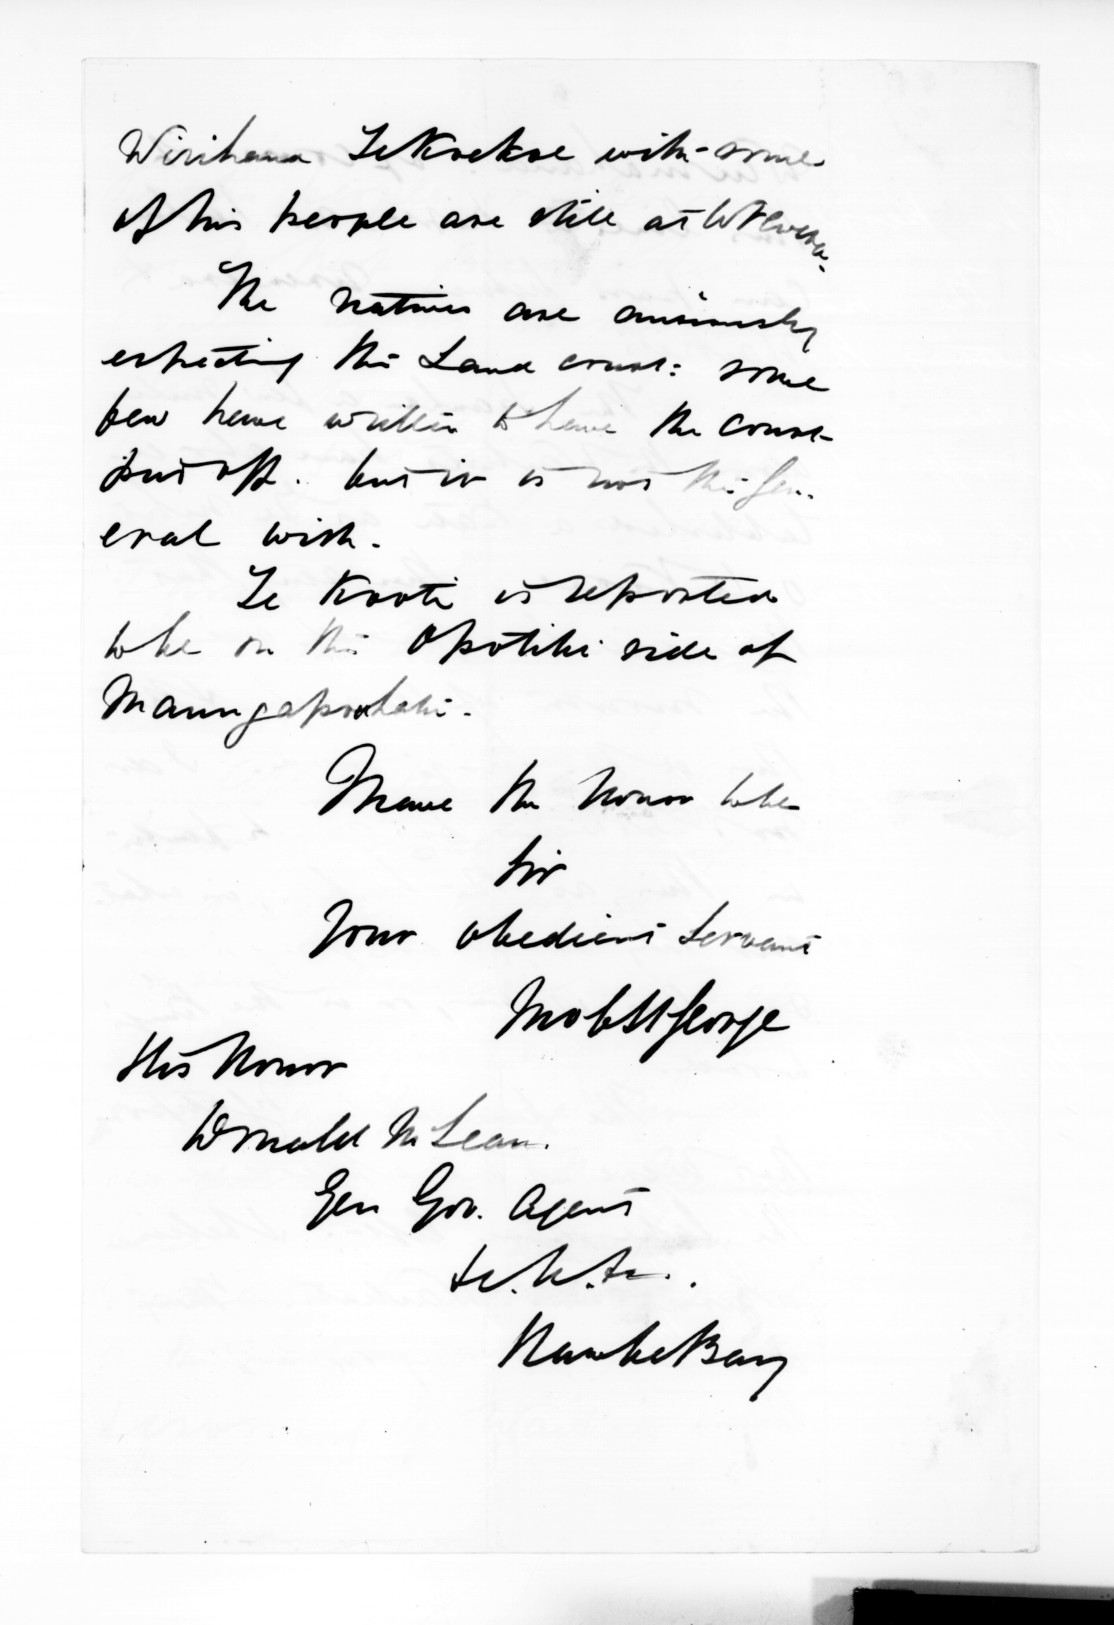 Wirihana Te Koekoe with some
of his people are still at
The natives are anxiously
expecting the Land court: some
few have written to have the court
put off. but it is not the gen-
eral wish.
Te Kooti is reported
to be on the Opotiki side of
Maungapowhatu.
I have the honor to be
Sir
Your obedient Servant
St George
His Honor
Donald McLean.
Gen Gov. Agent
&c. &c. &c.
Hawke Bay